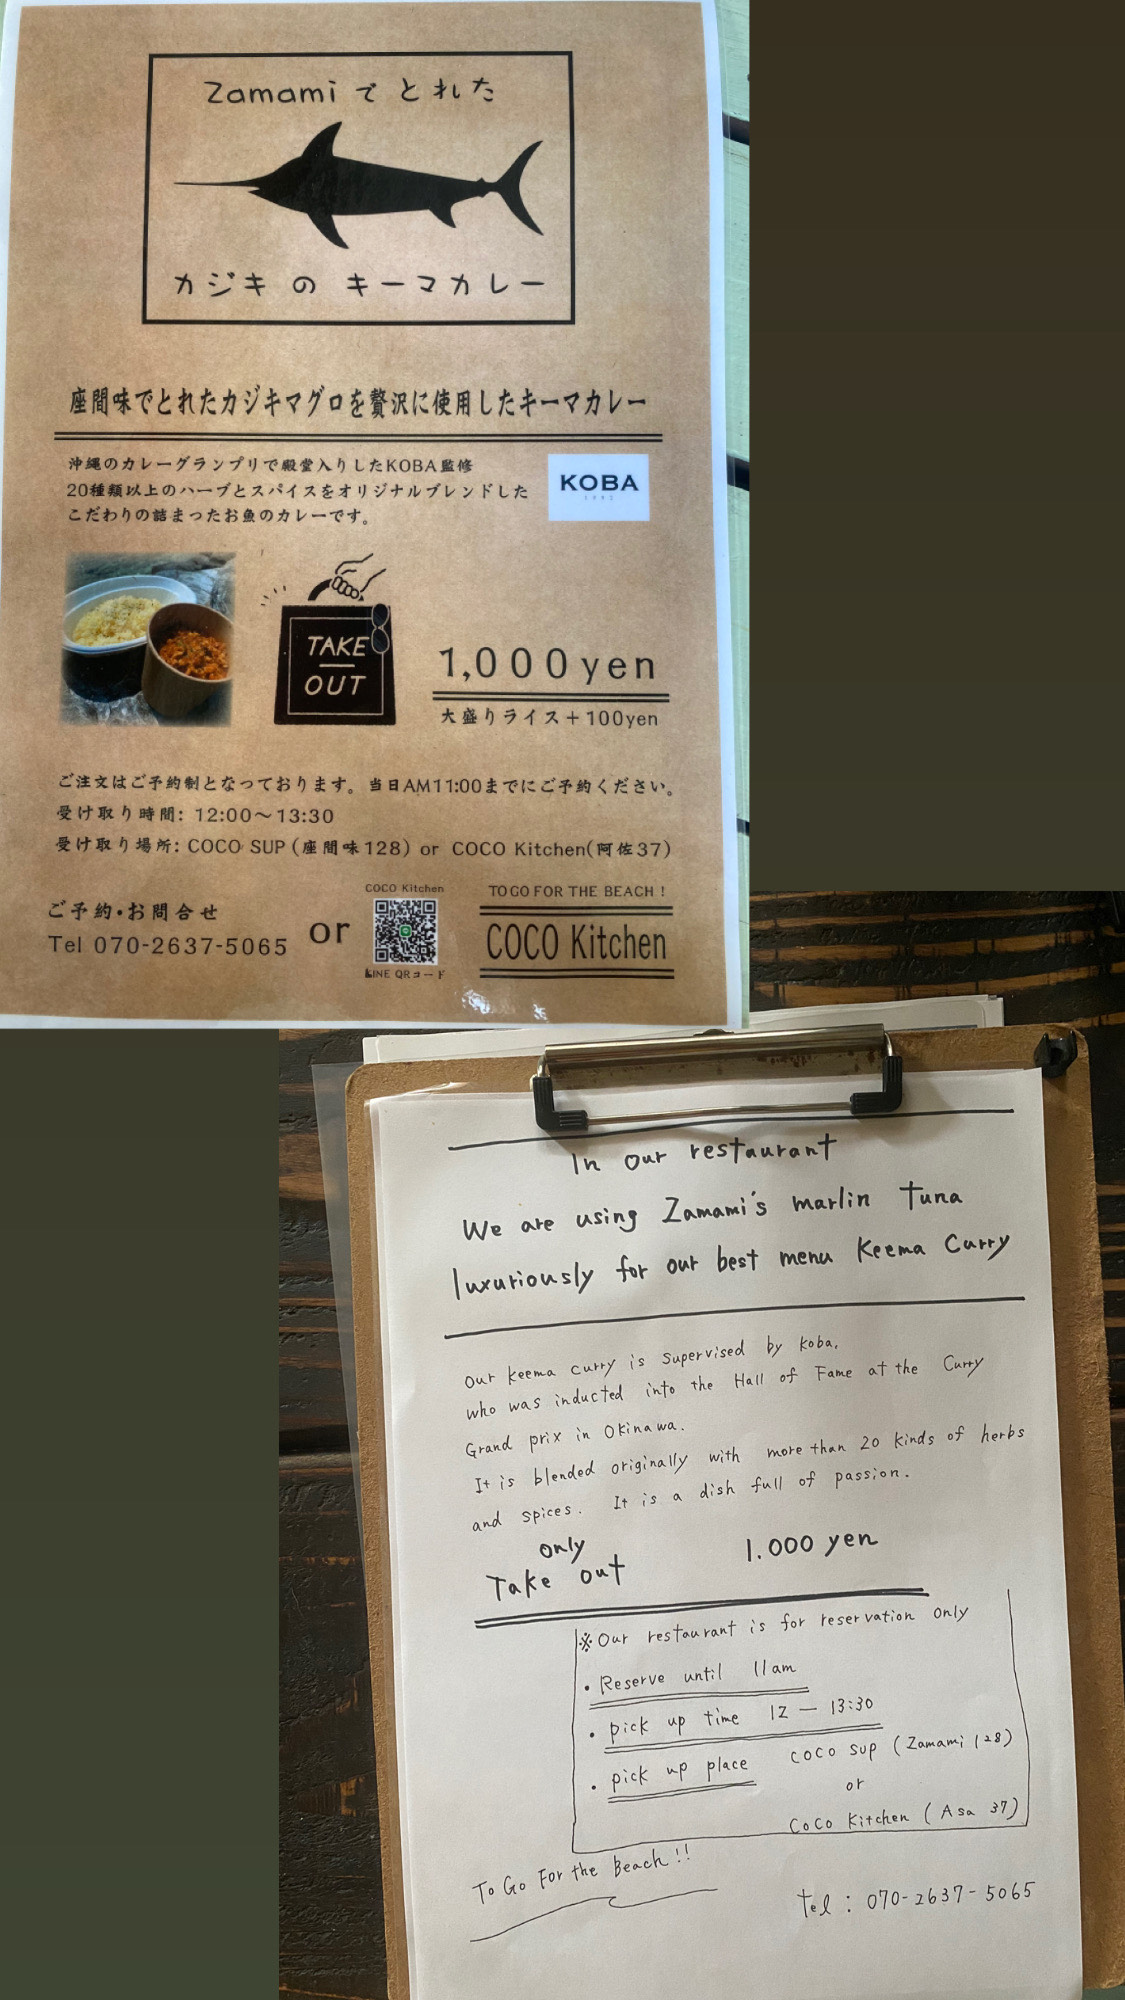 Zamami で とれた
カジキ の キーマカレー
座間味でとれたカジキマグロを贅沢に使用したキーマカレー
沖縄のカレーグランプリで殿堂入りしたKOBA監修
20種類以上のハーブとスパイスをオリジナルブレンドした
こだわりの詰まったお魚のカレーです。
KOBA
TAKE
OUT
1,000yen
大盛りライス+100yen
ご注文はご予約制となっております。当日AM11:00までにご予約ください。
受け取り時間: 12:00〜13:30
受け取り場所: COCO SUP (座間味128) or COCO Kitchen(阿佐37)
ご予約・お問合せ
Tel 070-2637-5065
or
COCO Kitchen
LINE QRコード
TO GO FOR THE BEACH !
COCO Kitchen
In our restaurant
We are using Zamami's marlin tuna
luxuriously for our best menu Keema Curry
Our keema curry is supervised by Koba,
who was inducted into the Hall of Fame at the Curry
Grand prix in Okinawa.
It is blended originally with more than 20 kinds of herbs
and spices. It is a dish full of passion.
only
Take out
1.000 yen
※Our restaurant is for reservation only
・Reserve until 11am
・pick up time 12 — 13:30
・pick up place COCO SUP (Zamami 128)
or
CoCo Kitchen (Asa 37)
To Go For the Beach!!
Tel : 070-2637-5065